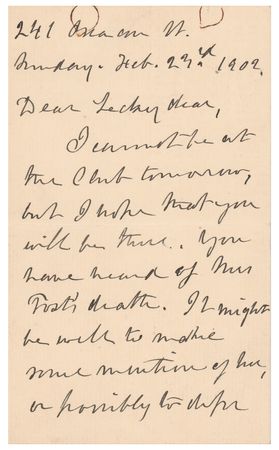 241 Beacon St.
Sunday. Feb. 23rd 1902.
Dear Leckey dear,
I cannot be at
the Club tomorrow,
but I hope that you
will be there. You
have heard of Mrs
Fost's death. It might
be well to make
some mention of her,
or possibly to defer